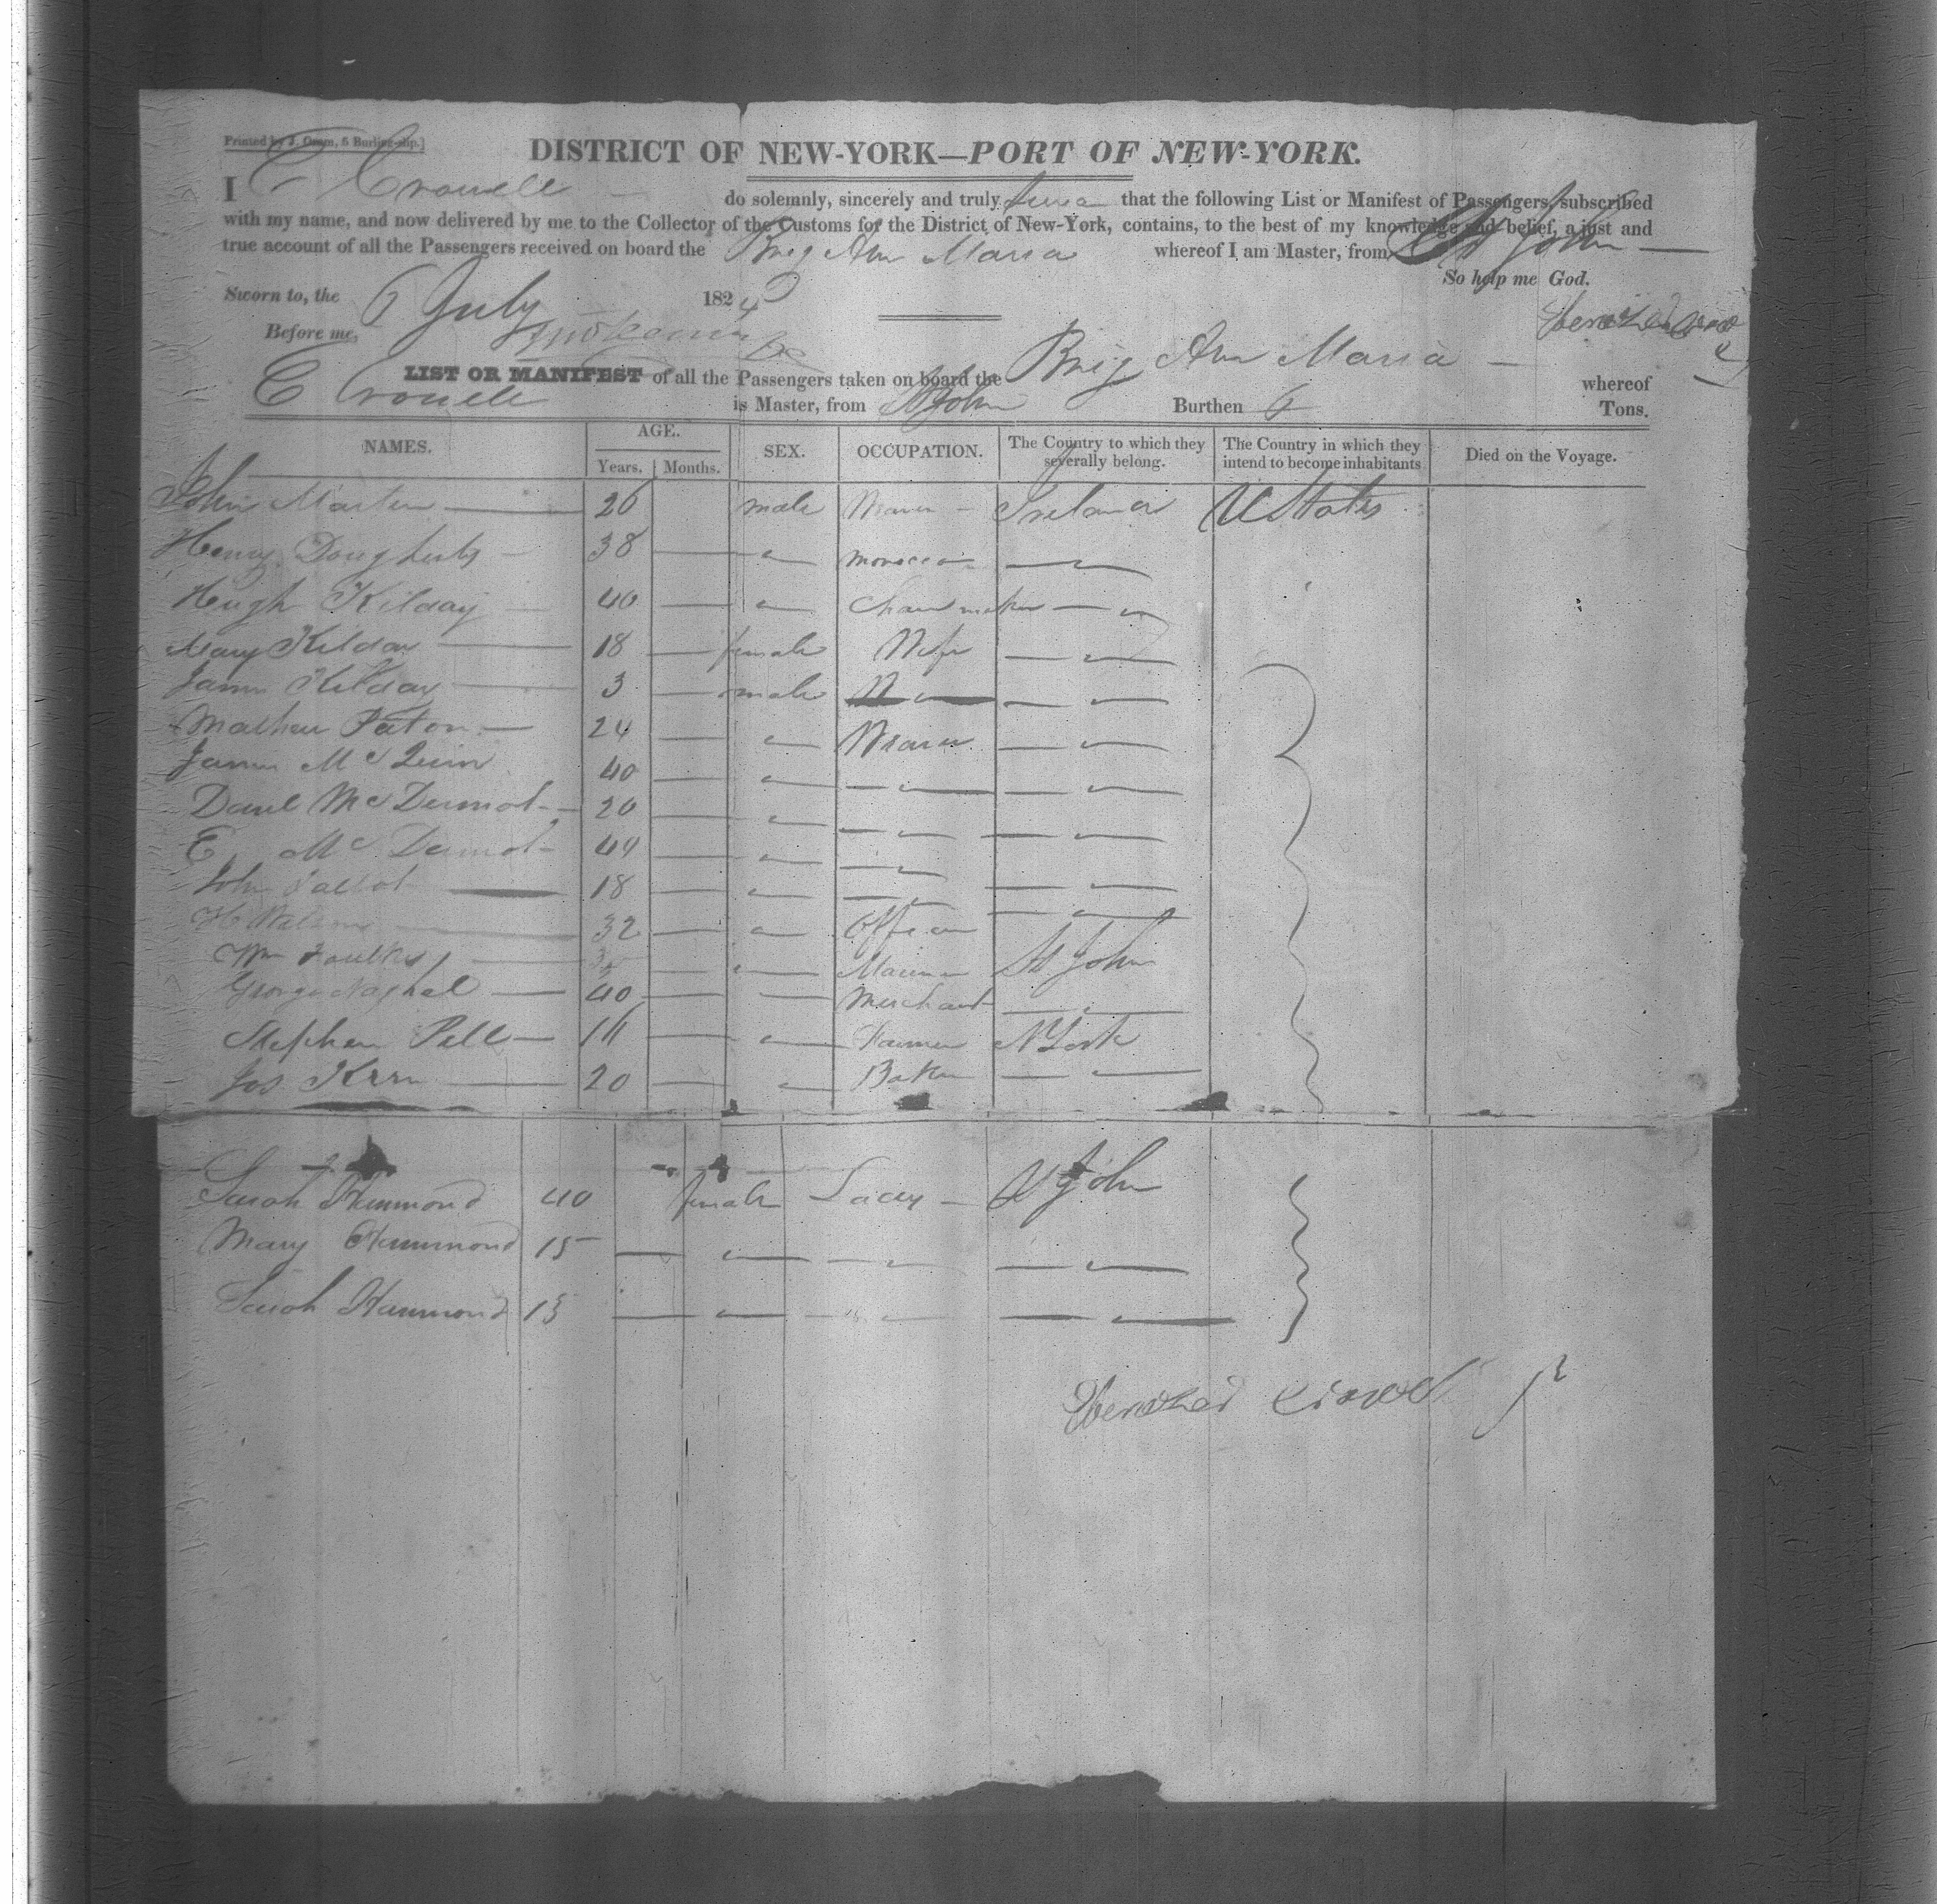 Printed by J. Oram, 5 Burling-slip.]
DISTRICT OF NEW-YORK—PORT OF NEW-YORK.
I E Crowell do solemnly, sincerely and truly swear that the following List or Manifest of Passengers, subscribed
with my name, and now delivered by me to the Collector of the Customs for the District of New-York, contains, to the best of my knowledge and belief, a just and
true account of all the Passengers received on board the Brig Ann Maria whereof I am Master, from St John
So help me God.
Sworn to, the 6 July 1824
Before me,
LIST OR MANIFEST of all the Passengers taken on board the Brig Ann Maria whereof
E Crowell is Master, from St John Burthen Tons.
NAMES. AGE. Years. Months. SEX. OCCUPATION. The Country to which they severally belong. The Country in which they intend to become inhabitants Died on the Voyage.
John Martin 26 male Weaver Ireland U States
Henry Dougherty 38 morocco
Hugh Kilday 40 Chairmaker
Mary Kilday 18 female Wife
James Kilday 3 male
Mathew Paton 24 Weaver
James McQuin 40
Danl McDermot 20
E McDermot
John 18
H 32 Officer
Wm Faulks Mariner St John
George 40 Merchant
Stephen Pell Farmer N York
Jos Kerr 20 Baker
Sarah Hammond 40 female Lady St John
Mary Hammond 15
Sarah Hammond 13
Ebenezer Crowell Jr